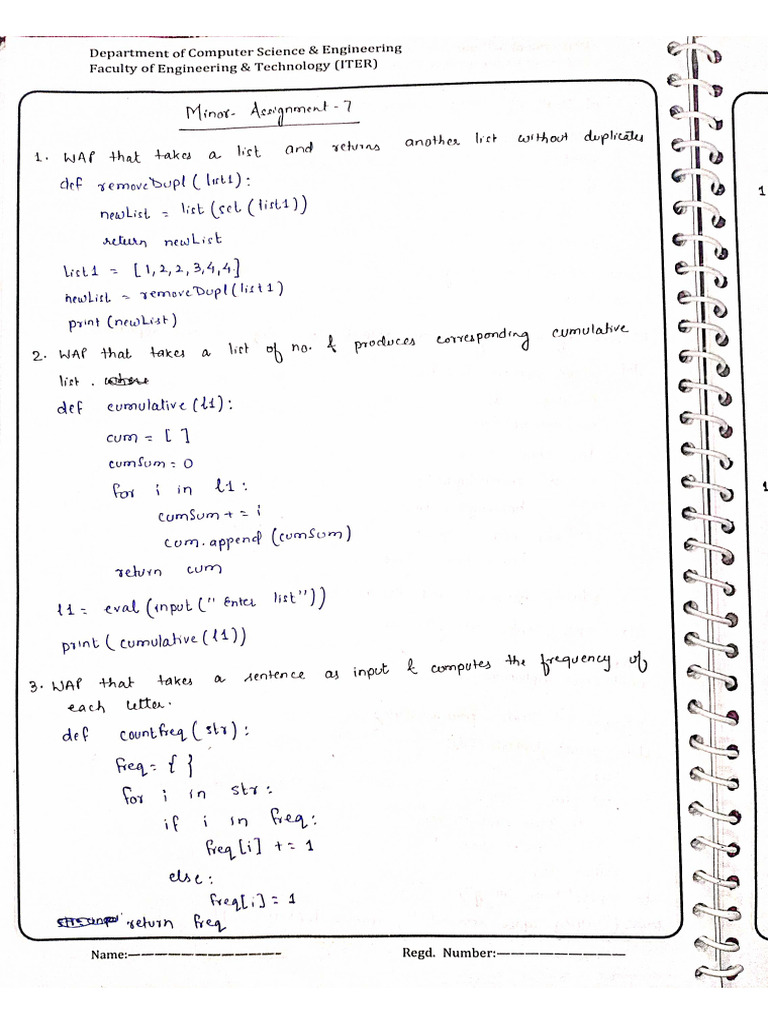 Department of Computer Science & Engineering
Faculty of Engineering & Technology (ITER)
Minor Assignment - 7
1. WAP that takes a list and returns another list without duplicates
def removeDupl (list1):
newList = list (set (list1))
return newList
list1 = [1,2,2,3,4,4]
newList = removeDupl (list1)
print (newList)
2. WAP that takes a list of no. & produces corresponding cumulative
list.
def cumulative (l1):
cum = [ ]
cumSum = 0
for i in l1:
cumSum += i
cum.append (cumSum)
return cum
l1 = eval (input ("Enter list"))
print ( cumulative (l1))
3. WAP that takes a sentence as input & computes the frequency of
each letter.
def countfreq (str):
freq = { }
for i in str:
if i in freq:
freq[i] += 1
else:
freq[i] = 1
return freq
Name:---------------- Regd. Number:----------------
1
1